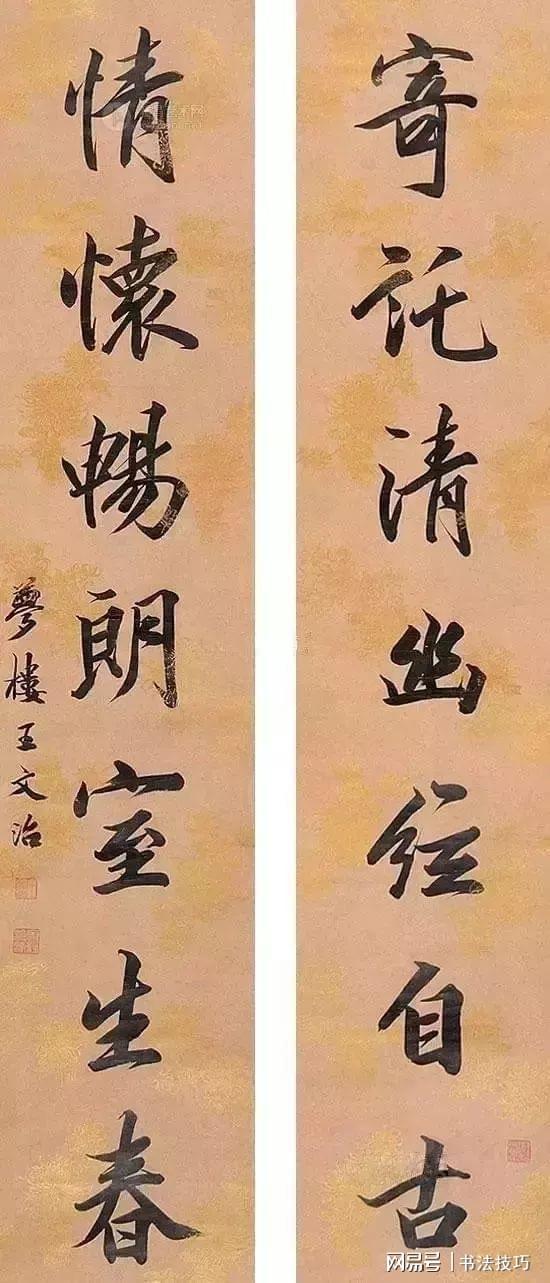 寄託清幽弦自古
情懷暢朗室生春
夢樓王文治
网易号 | 书法技巧